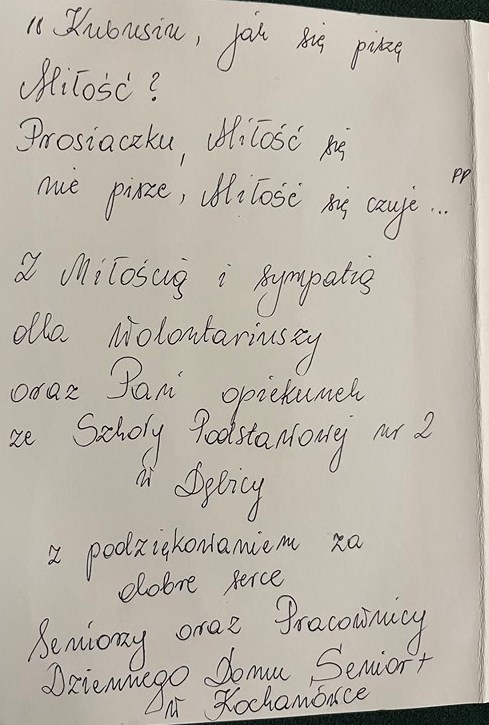 "Kubusiu, jak się piszę
Miłość?
Prosiaczku, Miłość się
nie pisze, Miłość się czuje..."
Z Miłością i sympatią
dla Wolontariuszy
oraz Pani opiekunek
ze Szkoły Podstawowej nr 2
w Dębicy
z podziękowaniem za
dobre serce
Seniorzy oraz Pracownicy
Dziennego Domu Senior+
w Kochanówce